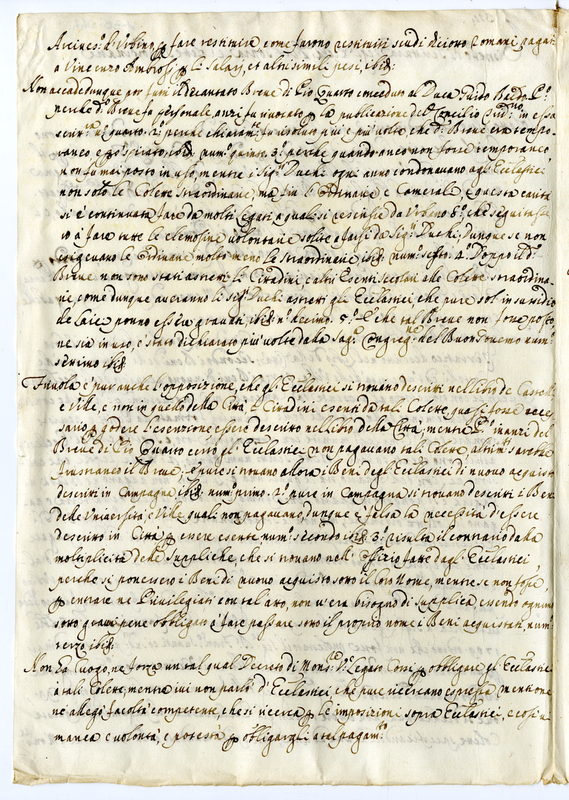 Arcives.º d'Urbino, e fare restituire come furono restituiti scudi diciotto romani pagati
a Vincenzo Ambrosij p le Salaij, et altri simili pesi, ibid:
Non accade dunque por fuori il decantato Breve di Pio Quarto conceduto al Duca Guido Baldo P.º
perche d.º Breve fu personale, anzi fu invocato p la publicazione del Concilio Trid:º in essa
2.º perche chiaram.te fu risoluto più e più volte, che d.º Breve era tempo-
raneo e già spirato, ibid. num.º quinto. 3.º perche quando anco non fosse temporaneo,
non fu mai posto in uso, mentre i Sig.ri Duchi ogni anno condonavano agl'Ecclesiastici
non solo le Colette straordinarie, ma fin l'ordinarie e Camerali, e questa carità
si è continuata fare da molti Legati a quali si
o à fare tutte le elemosine volontarie solite à farsi da Sig.ri Duchi, dunque se non
esigevano le ordinarie molto meno le straordinarie ibid. num.º sesto. 4.º Doppo il d.º
Breve non sono stati astretti li Cittadini, e altri Esenti secolari alle Colette straordina-
rie, come dunque averanno li Sig.ri Duchi astretti gli Ecclesiastici, che pure sol' in sussidio
de Laici ponno essere gravati ibid. n.º decimo. 5.º Che tal Breve non fosse posto,
ne sia in uso, è stato dichiarato più volte dalla Sag.ª Congreg.ne del Buon Governo num.º
settimo ibid.
Frivola è pur anche l'opposizione, che gli Ecclesiastici si trovano descritti nel libro de Castelli
e Ville, e non in quello della Città, e Cittadini esenti da tali Colette, quasi fosse neces-
sario p godere l'esenzione essere descritto nel libro della Città, mentre P.º inanzi del
Breve di Pio Quarto certo gl'Ecclesiastici non pagavano tali Colette, altrim.ti sarebbe
frustraneo il Breve, e pure si trovano allora i Beni degl'Ecclesiastici di nuovo acquisto
descritti in Campagna ibid. num.º primo. 2.º pure in Campagna si trovano descritti i Beni
delle Università, e Ville quali non pagavano, dunque è falsa la necessità d'essere
descritto in Città p essere esente num.º secondo ibid. 3.º risulta il contrario dalla
moltiplicità delle suppliche, che si trovano nell'Offizio fatte dagl'Ecclesiastici,
perche si ponessero i Beni di nuovo acquisto sotto il loro Nome, mentre se non fosse
p entrare ne Privilegiati con tal atto, non v'era bisogno di supplica essendo ognuno
sotto gravi pene obligato à fare passare sotto il proprio nome i Beni acquistati, num.º
terzo ibid.
Non ha luogo, ne forza un tal qual Decreto di Mons.re V.e Legato Corsi p obbligare gl'Ecclesiastici
a tali Colette, mentre ivi non parla d'Ecclesiastici, che pure ricercano espressa menzione
ne allega facoltà competente, che si ricerca p le imposizioni sopra Ecclesiastici, e così
manca e volontà, e potestà p obbligargli a tal pagam.to